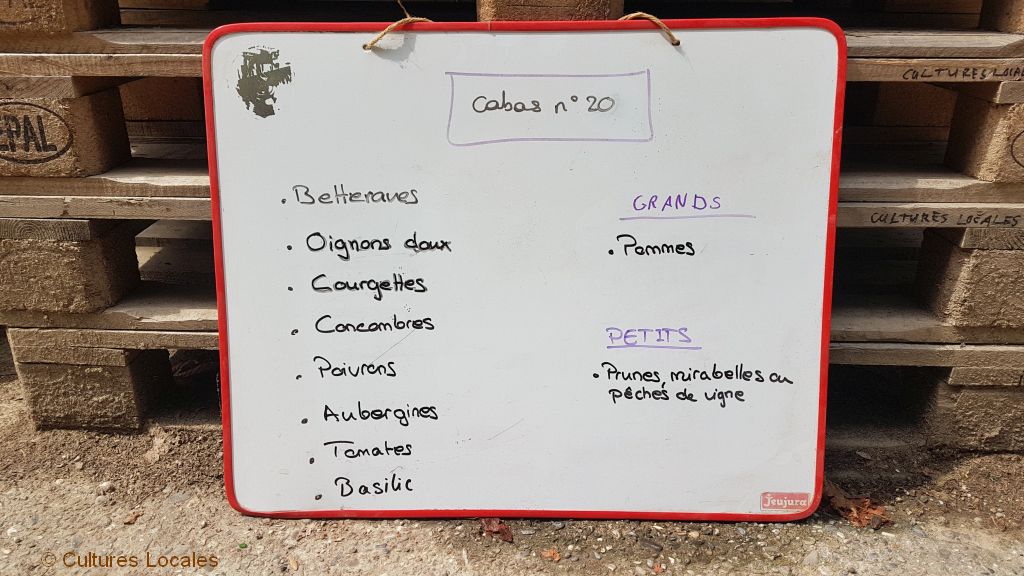 Cabas n° 20
• Betteraves
• Oignons doux
• Courgettes
• Concombres
• Poivrons
• Aubergines
• Tomates
• Basilic
GRANDS
• Pommes
PETITS
• Prunes, mirabelles ou
pêches de vigne
Jeujura
EPAL
CULTURES LOCALES
CULTURES LOCALES
© Cultures Locales